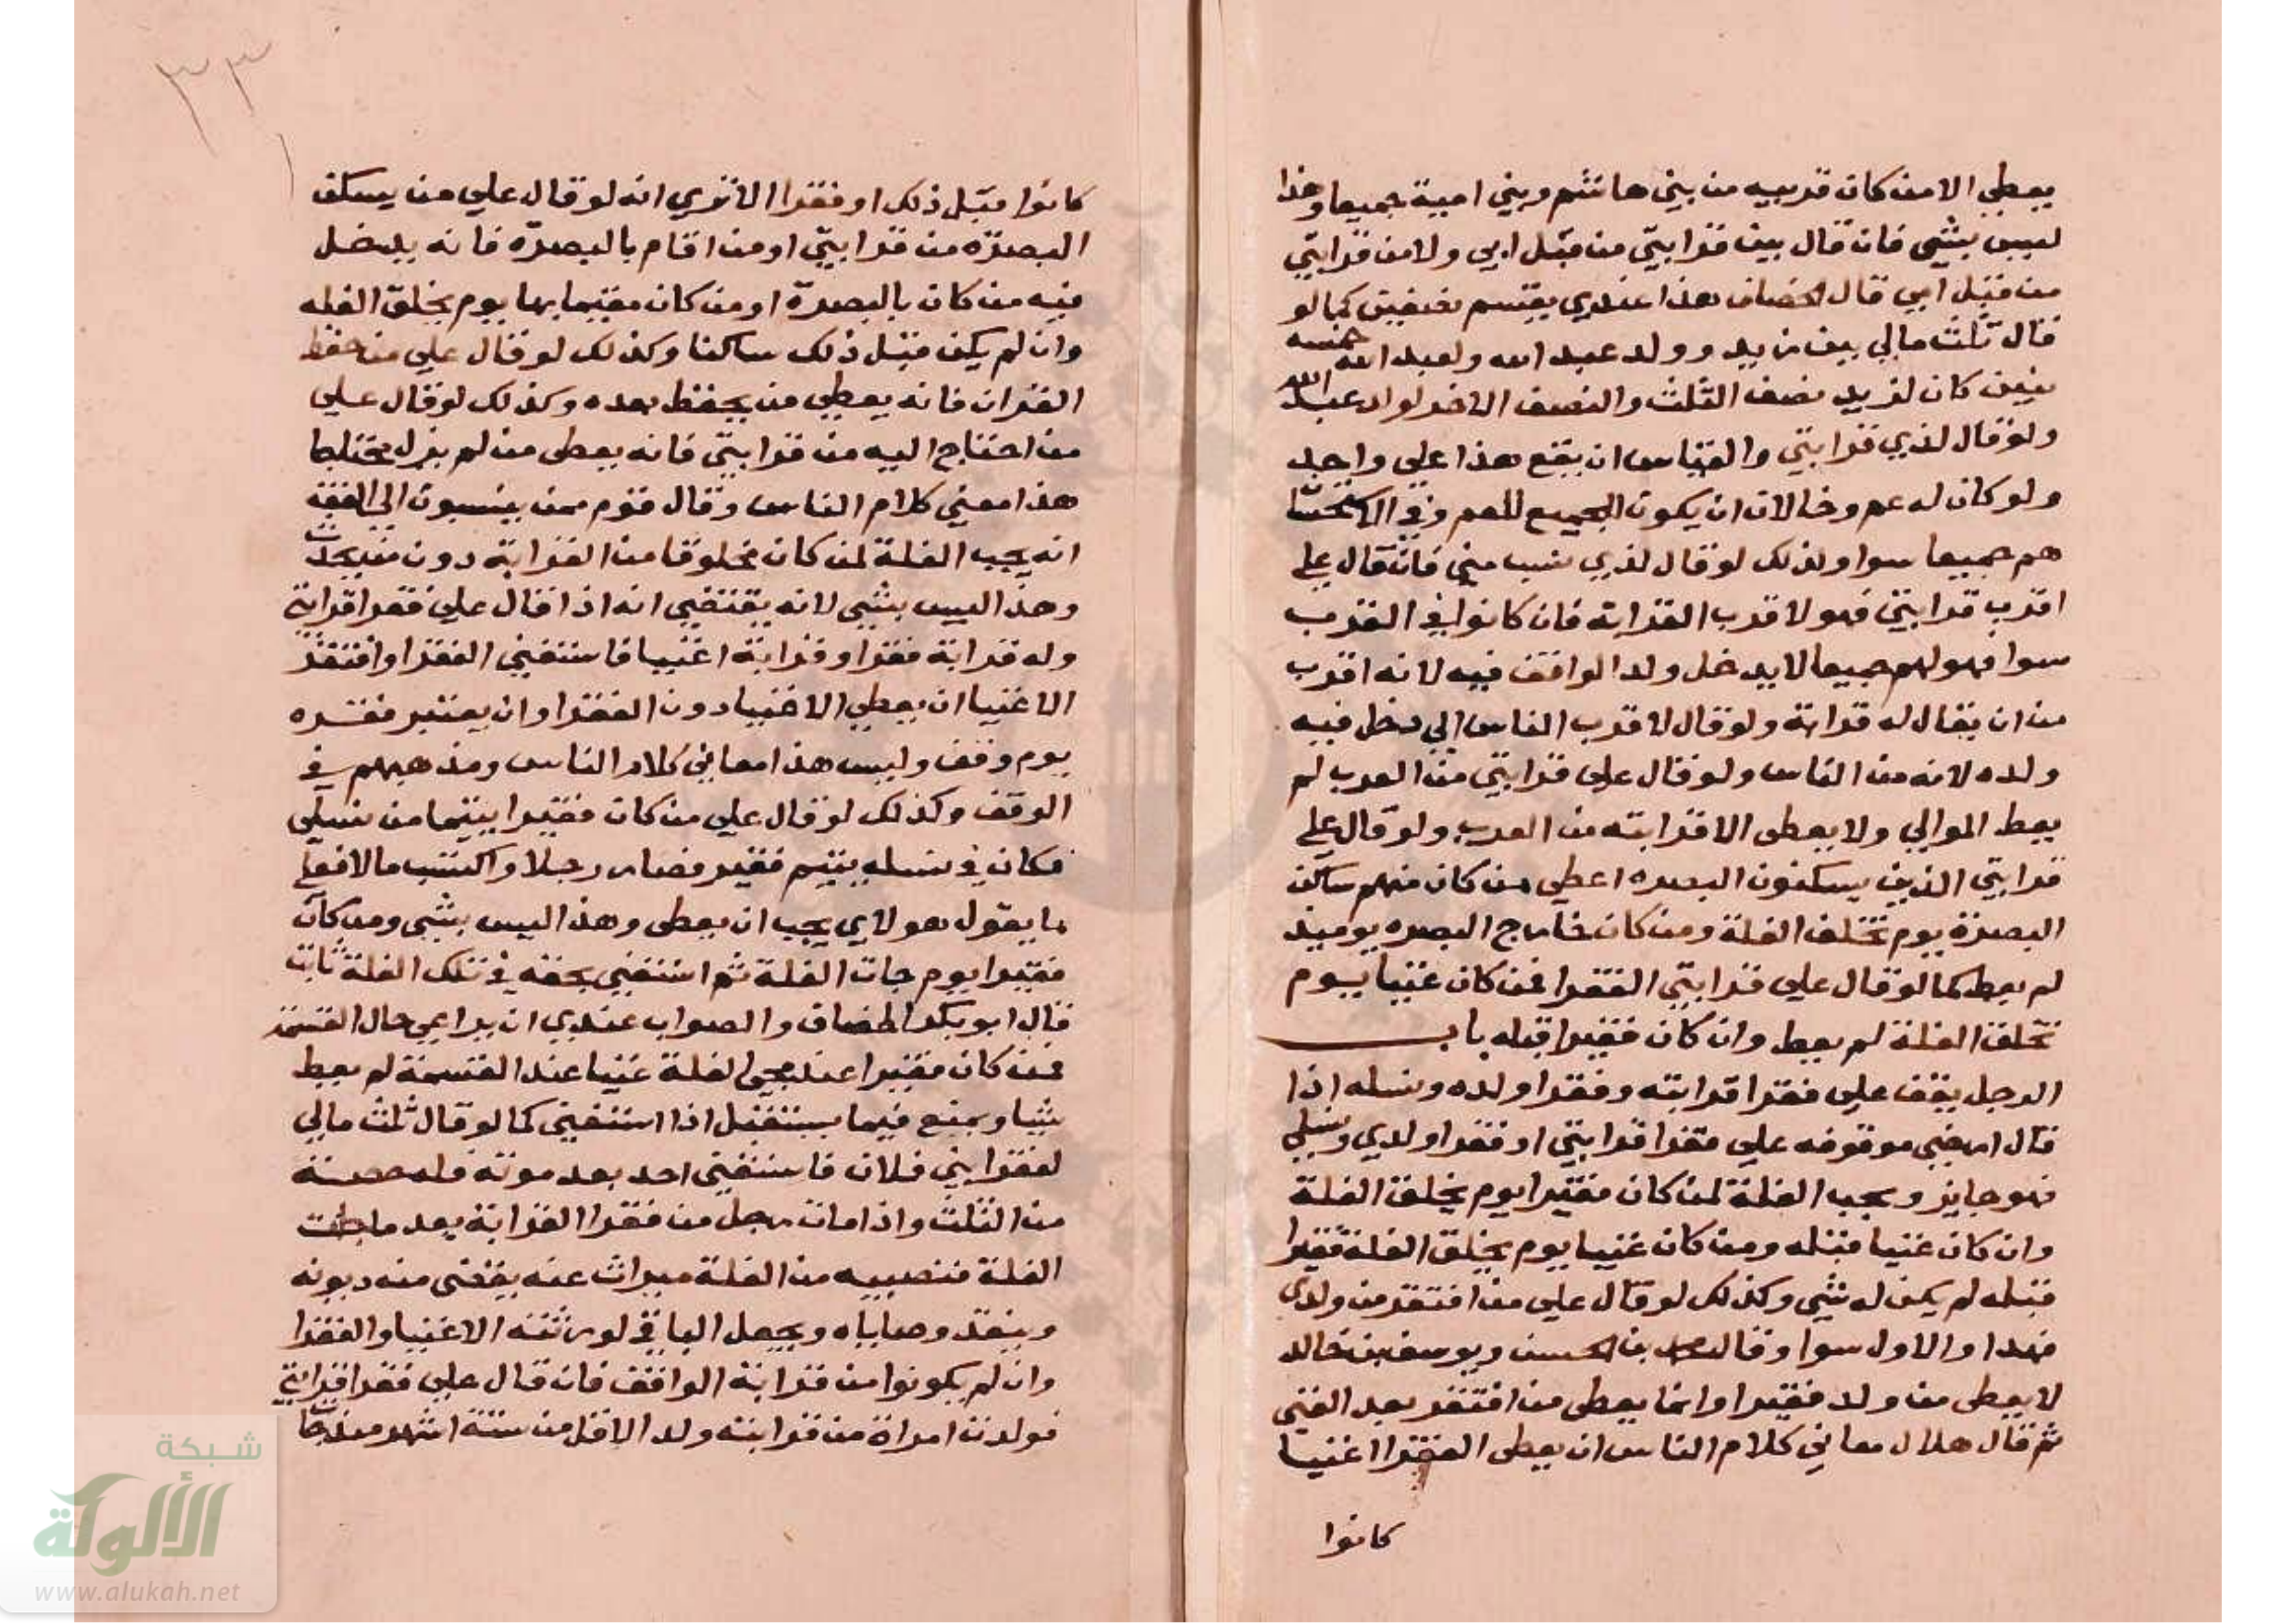 يعطي الا من كان قريبه من بني هاشم وبني امية جميعا وهذا
ليس بشي فان قال بين قرابتي من قبل ابي ولا من قرابتي
من قبل امي قال الخصاف هذا عندي يقسم نصفين كما لو
قال ثلث مالي بين زيد وولد عبد الله ولعبد الله خمسة
بنين كان لزيد نصف الثلث والنصف الاخر لولد عبد الله
ولو قال لذي قرابتي والقياس ان يقع هذا علي واحد
ولو كان له عم وخالان ان يكون الجميع للعم وفي الاستحسان
هم جميعا سوا وكذلك لو قال لذي نسب مني فان قال علي
اقرب قرابتي فهو لاقرب القرابة فان كانوا في القرب
سوا فهو لهم جميعا لا يدخل ولد الواقف فيه لانه اقرب
من ان يقال له قرابة ولو قال لاقرب الناس الي دخل فيه
ولده لانه من الناس ولو قال علي قرابتي من العرب لم
يعط الموالي ولا يعطى الا قرابته من العرب ولو قال علي
قرابتي الذين يسكنون البصره اعطي من كان منهم ساكن
البصرة يوم تخلق الغلة ومن كان خارج البصره يوميد
لم يعط كما لو قال علي قرابتي الفقرا فمن كان غنيا يوم
تخلق الغلة لم يعط وان كان فقيرا قبله باب
الرجل يقف علي فقرا قرابته وفقرا ولده ونسله اذا
قال ارضي موقوفه علي فقرا قرابتي او فقرا ولدي ونسلي
فهو جايز ويجب الغلة لمن كان فقيرا يوم يخلق الغلة
وان كان غنيا قبله ومن كان غنيا يوم يخلق الغلة فقيرا
قبله لم يكن له شي وكذلك لو قال علي من افتقر من ولدي
فهدا والاول سوا وقال محمد بن الحسن ويوسف بن خالد
لا يعطى من ولد فقيرا وانما يعطى من افتقر بعد الغنى
ثم قال هلال معاني كلام الناس ان يعطى الفقرا اغنيا
كانوا
٣٣
كانوا قبل ذلك او فقرا الا تري انه لو قال علي من يسكن
البصرة من قرابتي او من اقام بالبصرة فانه يدخل
فيه من كان بالبصرة او من كان مقيما بها يوم يخلق الغله
وان لم يكن قبل ذلك ساكنا وكذلك لو قال علي من حفظ
القران فانه يعطي من يحفظ بعده وكذلك لو قال علي
من احتاج اليه من قرابتي فانه يعطى من لم يزل محتاجا
هذا معني كلام الناس وقال قوم ممن ينسبون الي الفقه
انه يجب الغلة لمن كان مخلوقا من القرابة دون من يحدث
وهذا ليس بشي لانه يقتضي انه اذا قال علي فقرا قرابتي
وله قرابة فقرا وقرابة اغنيا فاستغني الفقرا وافتقر
الاغنيا ان يعطي الاغنيا دون الفقرا وان يعتبر فقره
يوم وقف وليس هذا معاني كلام الناس ومذهبهم في
الوقف وكذلك لو قال علي من كان فقيرا يتيما من نسلي
فكان في نسله يتيم فقير فصار رجلا واكتسب مالا فعلي
ما يقول هولاي يجب ان يعطى وهذا ليس بشي ومن كان
فقيرا يوم جات الغلة ثم استغني بحقه في تلك الغلة ثابت
قال ابو بكر الخصاف والصواب عندي ان يراعي حال القسمة
فمن كان فقيرا عند مجي الغلة غنيا عند القسمة لم يعط
شيا ويمنع فيما يستقبل اذا استغني كما لو قال ثلث مالي
لفقرا بني فلان فاستغني احد بعد موته فله حصته
من الثلث واذا مات رجل من فقرا القرابة بعد ما جات
الغلة فنصيبه من الغلة ميراث عنه يقضى منه ديونه
وينفذ وصاياه ويجعل الباقي لورثته الاغنيا والفقرا
وان لم يكونوا من قرابة الواقف فان قال علي فقرا قرابتي
فولدت امراة من قرابته ولد الاقل من ستة اشهر منذ جات
شبكة
الألوكة
www.alukah.net